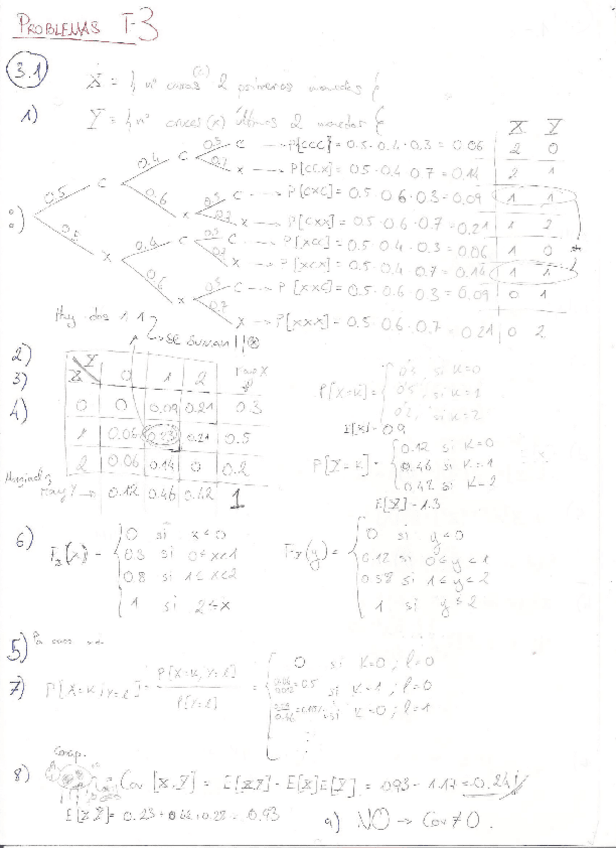 PROBLEMAS T-3
3.1
X = { nº caras (c) 2 primeras monedas }
1) Y = { nº cruces (x) últimas 2 monedas }
X Y
0.5 C 0.4 C C → P[CCC] = 0.5 · 0.4 · 0.3 = 0.06 2 0
X → P[CCX] = 0.5 · 0.4 0.7 = 0.14 2 1
0.6 X C → P[CXC] = 0.5 0.6 0.3 = 0.09 1 1
X → P[CXX] = 0.5 · 0.6 · 0.7 = 0.21 1 2
X 0.4 C C → P[XCC] = 0.5 0.4 · 0.3 = 0.06 1 0
X → P[XCX] = 0.5 · 0.4 0.7 = 0.14 1 1
0.6 X C → P[XXC] = 0.5 · 0.6 0.3 = 0.09 0 1
0.7 X → P[XXX] = 0.5 0.6 · 0.7 = 0.21 0 2
Hay dos 1 1 → SE SUMAN!!
2) Y
3) X 0 1 2
4) 0 0 0.09 0.21 0.3
1 0.06 0.23 0.21 0.5
2 0.06 0.14 0 0.2
0.12 0.46 0.42 1
P[X=K] = si K=0
si K=1
si K=2
E[X] = 0.9
P[Y=K] = 0.12 si K=0
0.46 si K=1
0.42 si K=2
E[Y] = 1.3
6) 0 si x<0
0.3 si 0≤x<1
0.8 si 1≤x<2
1 si 2≤x
(y) = 0 si y<0
0.12 si 0≤y<1
0.58 si 1≤y<2
1 si y≥2
5)
7) P[X=K | Y=l] = P[X=K, Y=l] / P[Y=l] = 0 si K=0; l=0
= 0.5 si K=1; l=0
si K=0; l=1
8) Cov [X,Y] = E[XY] - E[X]E[Y] = 0.93 - 1.17 = -0.24
E[XY] = 0.23 + + 0.28 = 0.93
9) NO → Cov≠0.